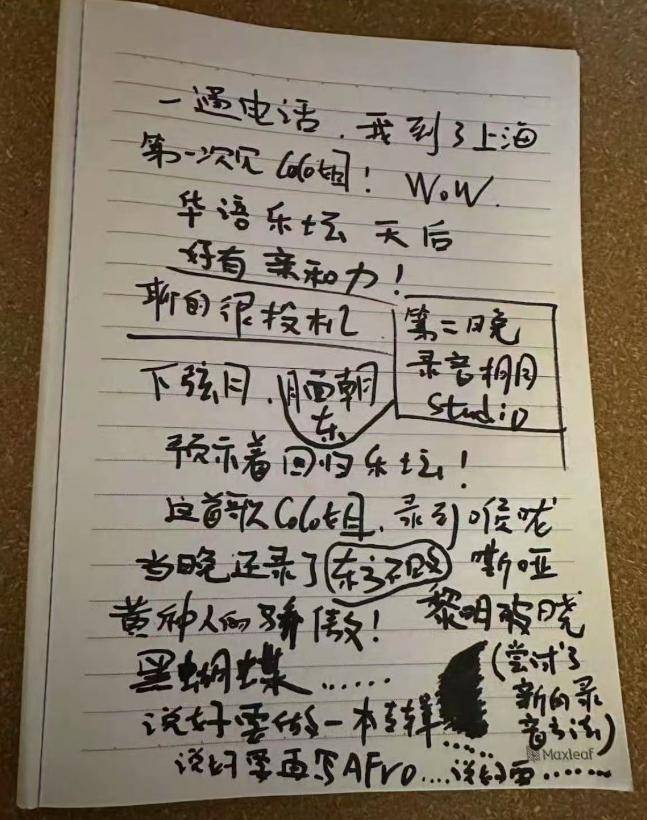 一通电话，我到了上海
第一次见CoCo姐！WoW.
华语乐坛天后
好有亲和力！
聊的很投机
第二晚
录音棚
Studio
下弦月，月面朝
东
预示着回归乐坛！
这首歌CoCo姐，录到喉咙
嘶哑
当晚还录了东方不败
黄种人的骄傲！黎明破晓
黑蝴蝶……
(尝试了
新的录
音方法)
说好要做一本专辑……
说好要再写AFro….说好要……
Maxleaf